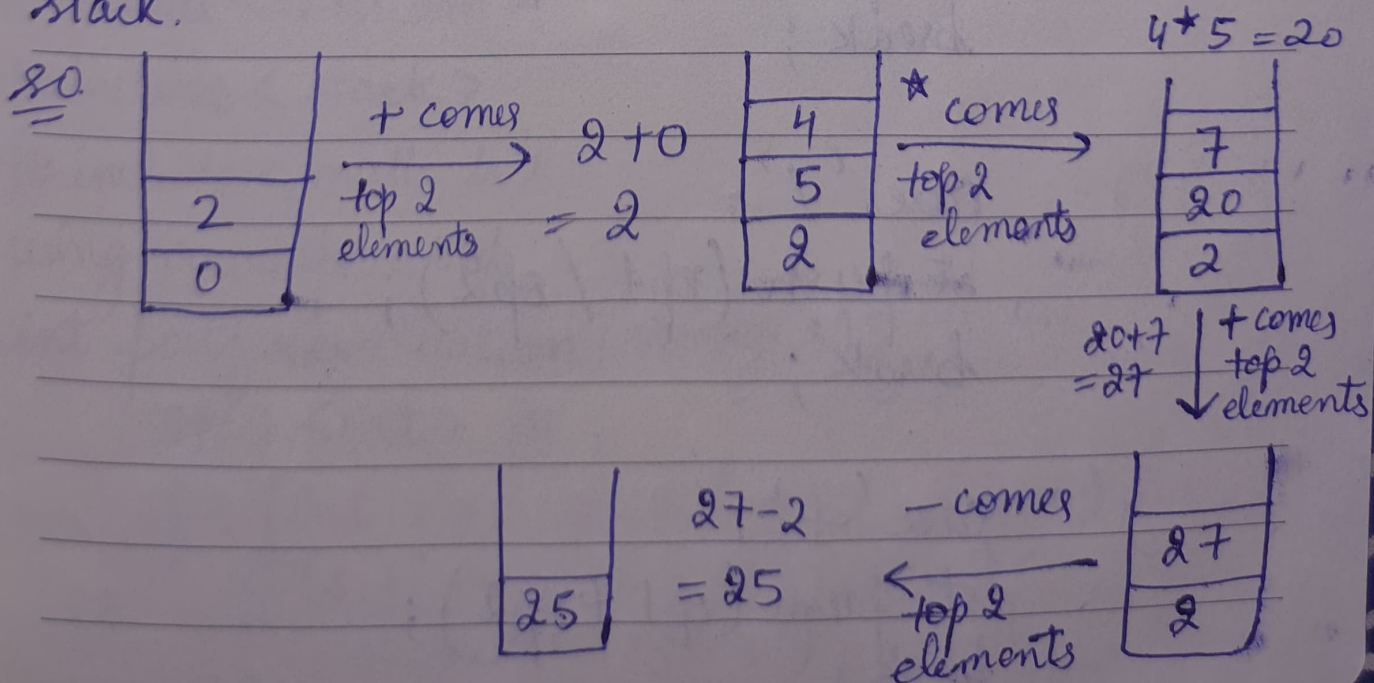 stack.
4*5=20
SO.
2
0
+ comes
top 2
elements
2+0
= 2
4
5
2
* comes
top 2
elements
7
20
2
20+7
=27
+ comes
top 2
elements
27
2
- comes
top 2
elements
27-2
= 25
25